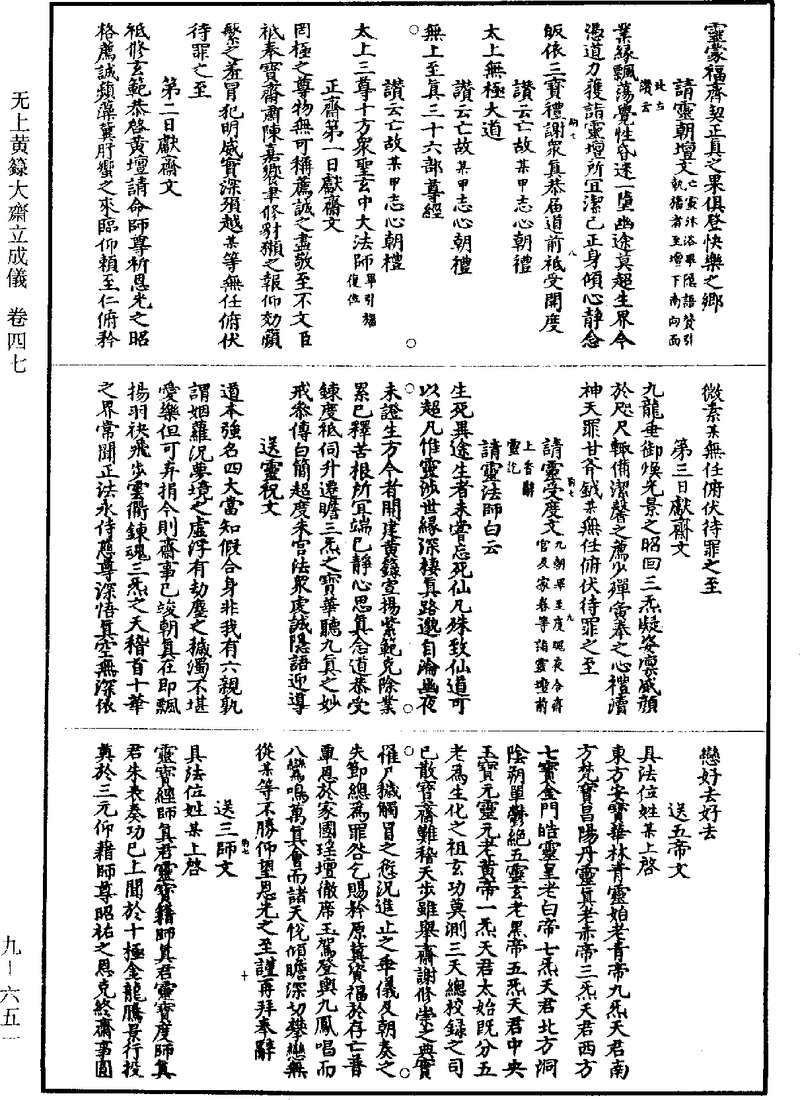 靈蒙福齊契正真之果俱登快樂之鄉
請靈朝壇文亡靈沐浴畢隱語贊引執旛者至壇下南向而北立
讚云
業緣飄蕩覺性昏迷一墮幽途莫超生界今
憑道力獲詣靈壇所宜潔己正身傾心靜念
皈依三寶禮謝眾真恭屆道前祗受開度
讚云亡故某甲志心朝禮
太上無極大道
讚云亡故某甲志心朝禮
無上至真三十六部尊經
讚云亡故某甲志心朝禮
太上三尊十方眾聖玄中大法師畢引旛復位
正齋第一日獻齋文
罔極之尊物無可稱薦誠之盡敬至不文臣
祗奉寶齋肅陳嘉饗聿修豺獺之報仰効蘋
蘩之羞冒犯明威實深殞越某等無任俯伏
待罪之至
第二日獻齋文
祗修玄範恭啓黃壇請命師尊祈恩光之昭
格薦誠蘋藻冀肸蠁之來臨仰賴至仁俯矜
微素某無任俯伏待罪之至
第三日獻齋文
九龍垂御煥光景之昭回三炁凝姿凛威顏
於咫尺輒備潔馨之薦少殫齋奉之心禮瀆
神天罪甘斧鉞某無任俯伏待罪之至
請靈受度文九朝畢至度魂夜令齋官及家眷等詣靈壇前上香辭靈訖
請靈法師白云
生死異途生者未嘗忘死仙凡殊致仙道可
以超凡惟靈涉世緣深棲真路邈自淪幽夜
未證生方今者開建黃籙宣揚紫範克除業
累已釋苦根所宜端已靜心思真念道恭受
鍊度祗伺升遷瞻三炁之寶華聽九真之妙
戒叅傳白簡超度朱宮法眾虔誠隱語迎導
送靈祝文
道本強名四大當知假合身非我有六親孰
謂姻羅況夢境之虛浮有劫塵之穢濁不堪
愛樂但可弃捐今則齋事已竣朝真在即飄
揚羽袂飛步雲衢鍊魂三炁之天稽首十華
之界常聞正法永侍慈尊深悟真空無深依
戀好去好去
送五帝文
具法位姓某上啓
東方安寶華林青靈始老青帝九炁天君南
方梵寶昌陽丹靈真老赤帝三炁天君西方
七寶金門皓靈皇老白帝七炁天君北方洞
陰朔單鬱絕五靈玄老黑帝五炁天君中央
玉寶元靈元老黃帝一炁天君太始既分五
老為生化之祖玄功莫測三天總校録之司
已散寶齋難稽天步雖舉齋謝修崇之典實
罹尸穢觸冒之愆況進止之乖儀及朝奏之
失節總為罪咎乞賜矜原冀資福於存亡普
覃恩於家國瑤壇徹席玉駕登輿九鳳唱而
八鸞鳴萬真會而諸天悅傾瞻深切攀戀無
從某等不勝仰望恩光之至謹再拜奉辭
送三師文
具法位姓某上啓
靈寶經師真君靈寶籍師真君靈寶度師真
君朱表奏功已上聞於十極金龍騰景行投
奠於三元仰藉師尊昭祐之恩克終齋事圓
无上黃籙大齋立成儀　卷四七
九－六五一